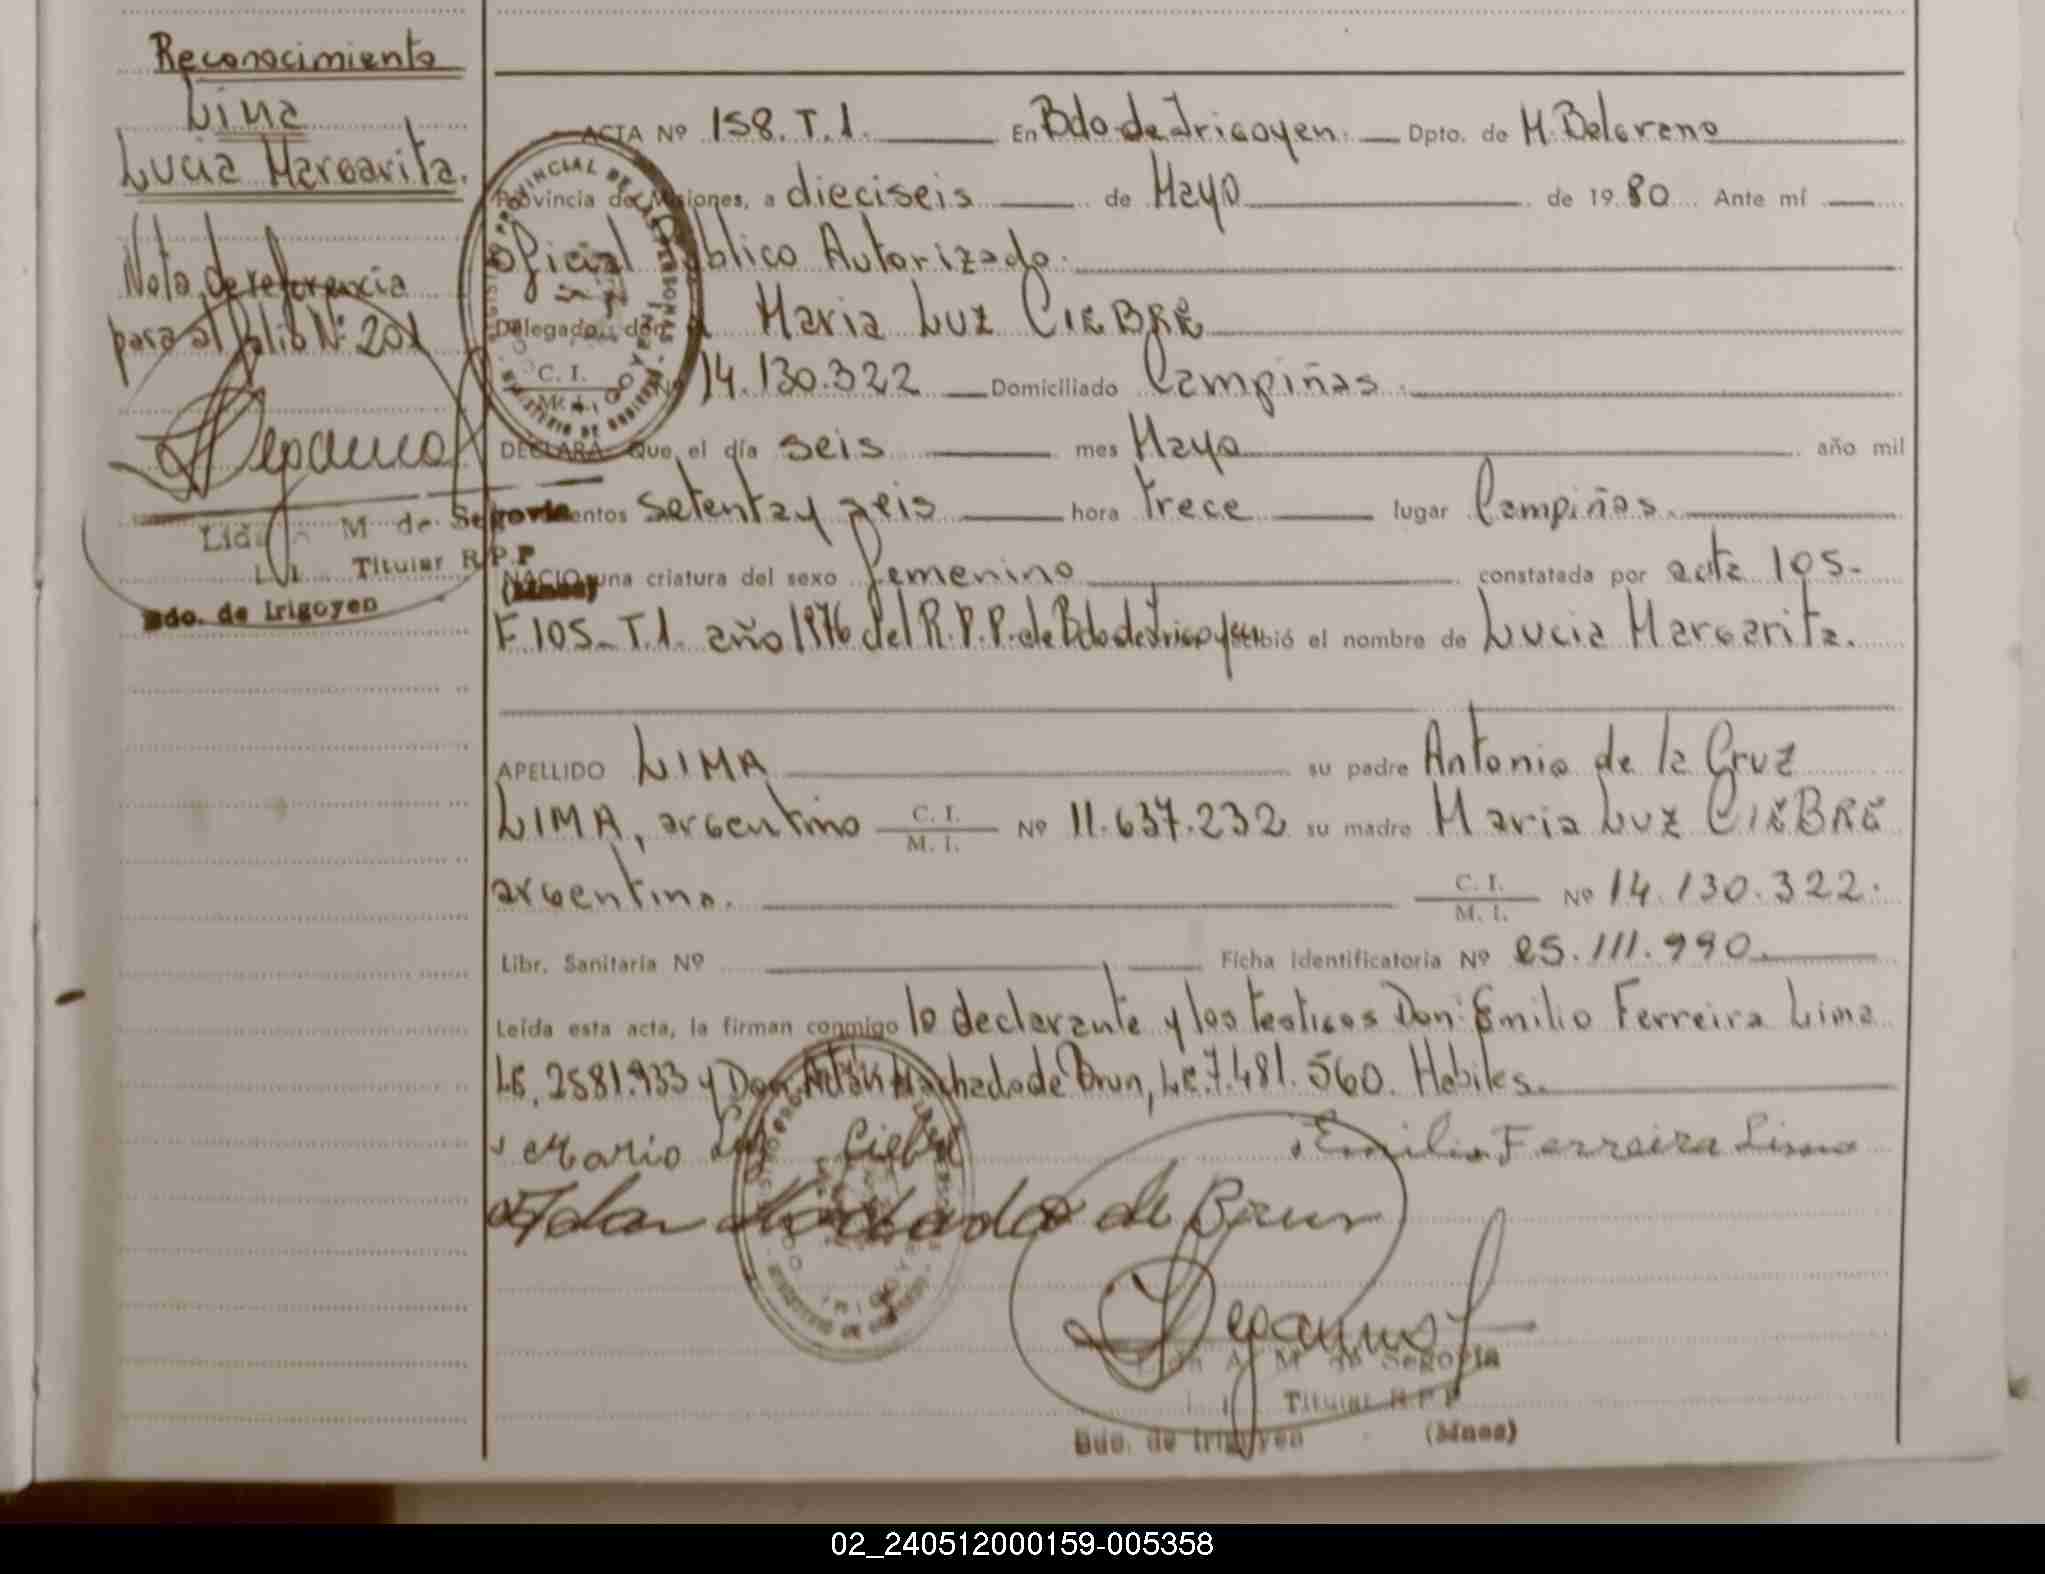 Reconocimiento
Lima
Lucia Margarita.
Nota de referencia
para al folio Nº 201
M de Segovia
Titular R.P.P
Bdo. de Irigoyen
(Mnes)
ACTA Nº 158. T.1. En Bdo de Irigoyen. Dpto. de M. Belgrano
Provincia de Misiones, a dieciseis de Mayo de 1980. Ante mí
Oficial Público Autorizado.
Delegado, don a Maria Luz CIEBRE
C. I.
M. I.
Nº 14.130.322 Domiciliado Campiñas.
DECLARA: Que el día seis mes Mayo año mil
setenta y seis hora trece lugar Campiñas.
NACIO una criatura del sexo femenino constatada por acta 105-
F. 105- T.1. año 1976 del R.P.P. de Bdo de Irigoyen recibió el nombre de Lucia Margarita.
APELLIDO LIMA su padre Antonio de la Cruz
LIMA, argentino C. I. / M. I. Nº 11.637.232 su madre Maria Luz CIEBRE
argentina. C. I. / M. I. Nº 14.130.322.
Libr. Sanitaria Nº Ficha identificatoria Nº 25.111.990.
Leída esta acta, la firman conmigo la declarante y los testigos Don: Emilio Ferreira Lima
LE. 2581.933 y Don Adán Machado de Brun, LE. 7.481.560. Habiles.
Maria Luz Ciebre
Emilio Ferreira Lima
Adan Machado de Brun
A. M. de Segovia
Titular R.P.P
Bdo. de Irigoyen (Mnes)
02_240512000159-005358